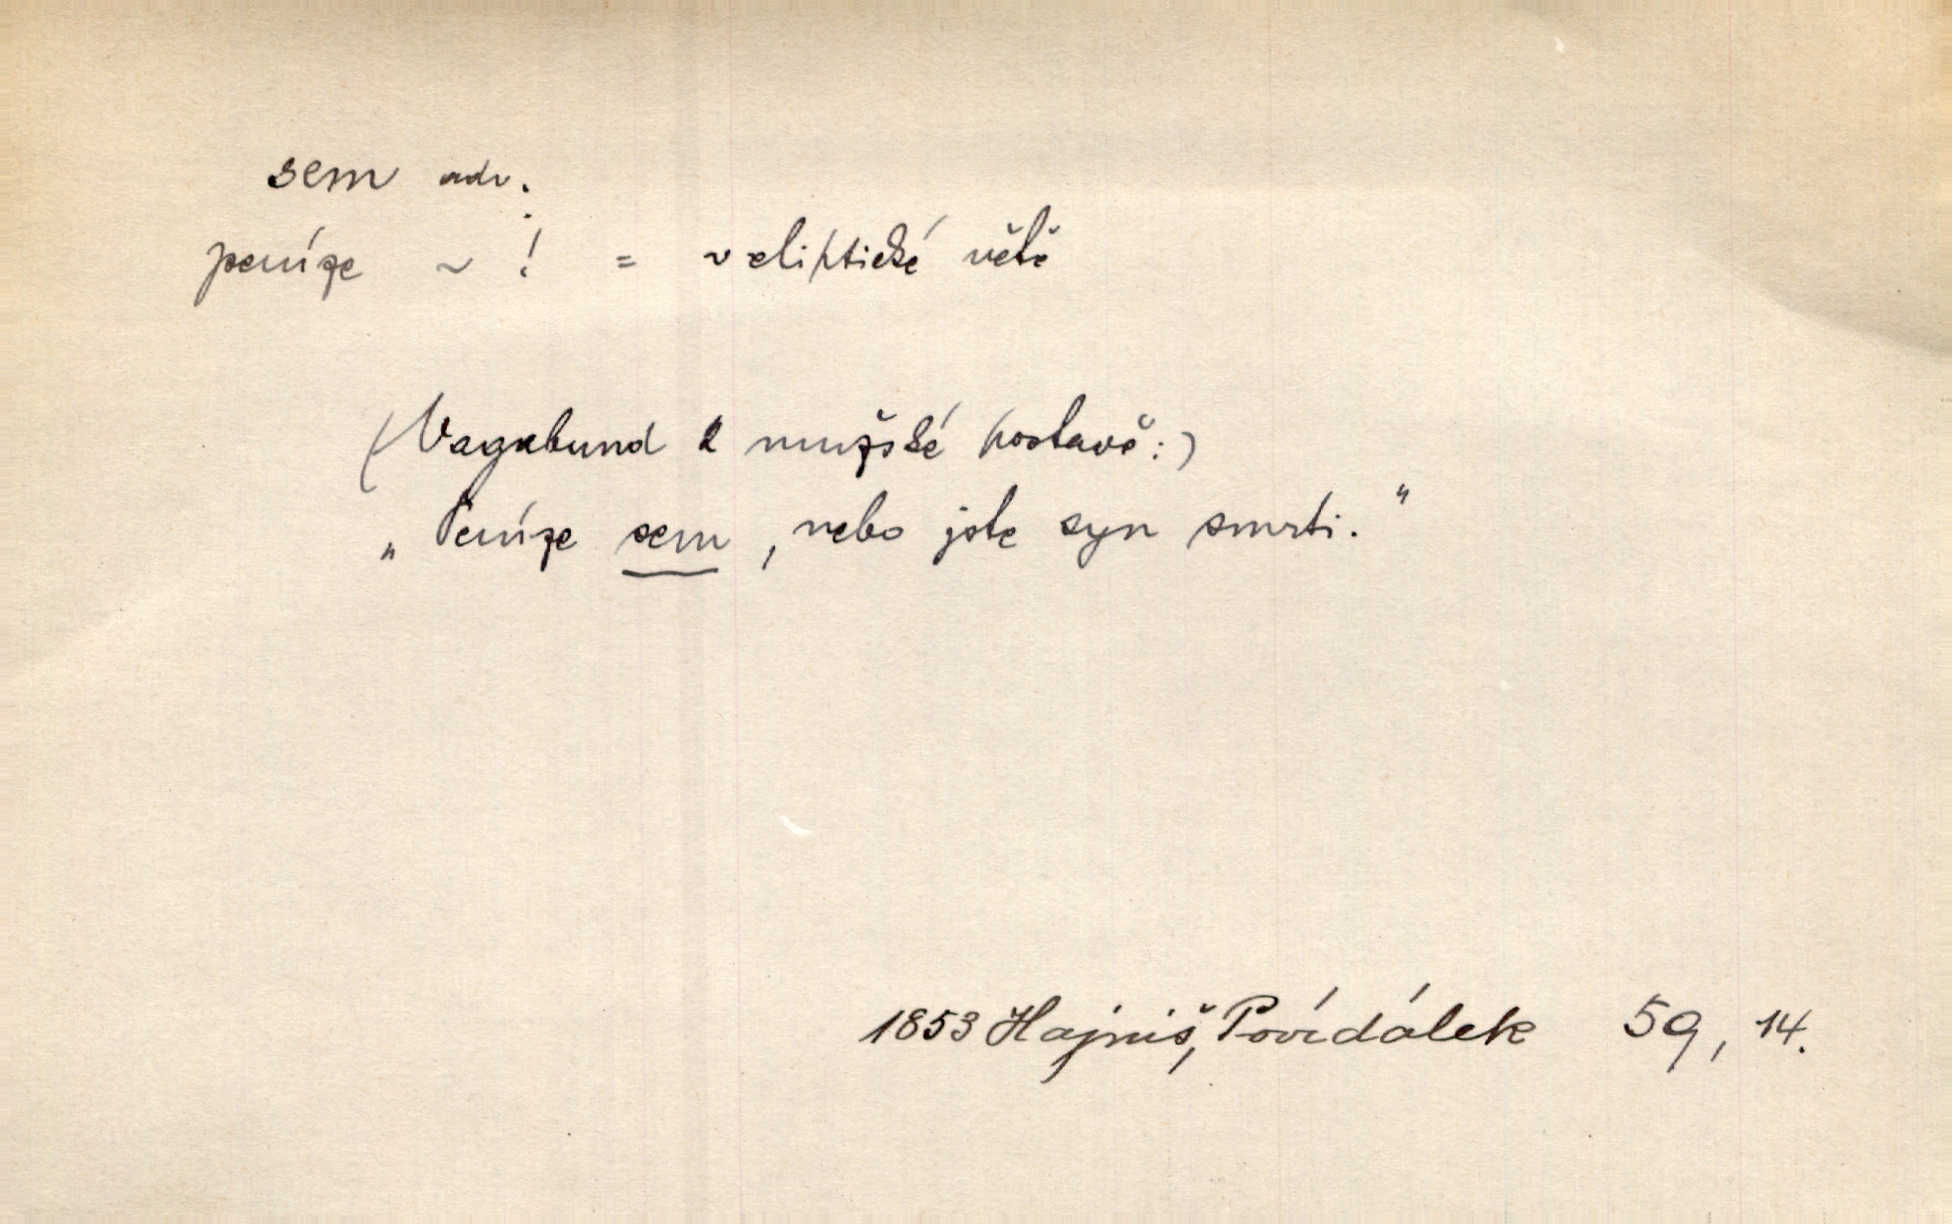 sem adv.
peníze ~ ! = v eliptické větě
(Vagabund k mužské postavě:)
„Peníze sem, nebo jste syn smrti."
1853 Hajniš, Povídálek 59, 14.